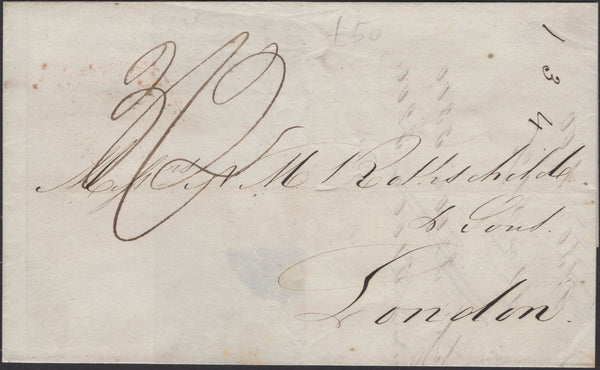 £50
134
Messrs N M Rothschild
& Sons.
London.